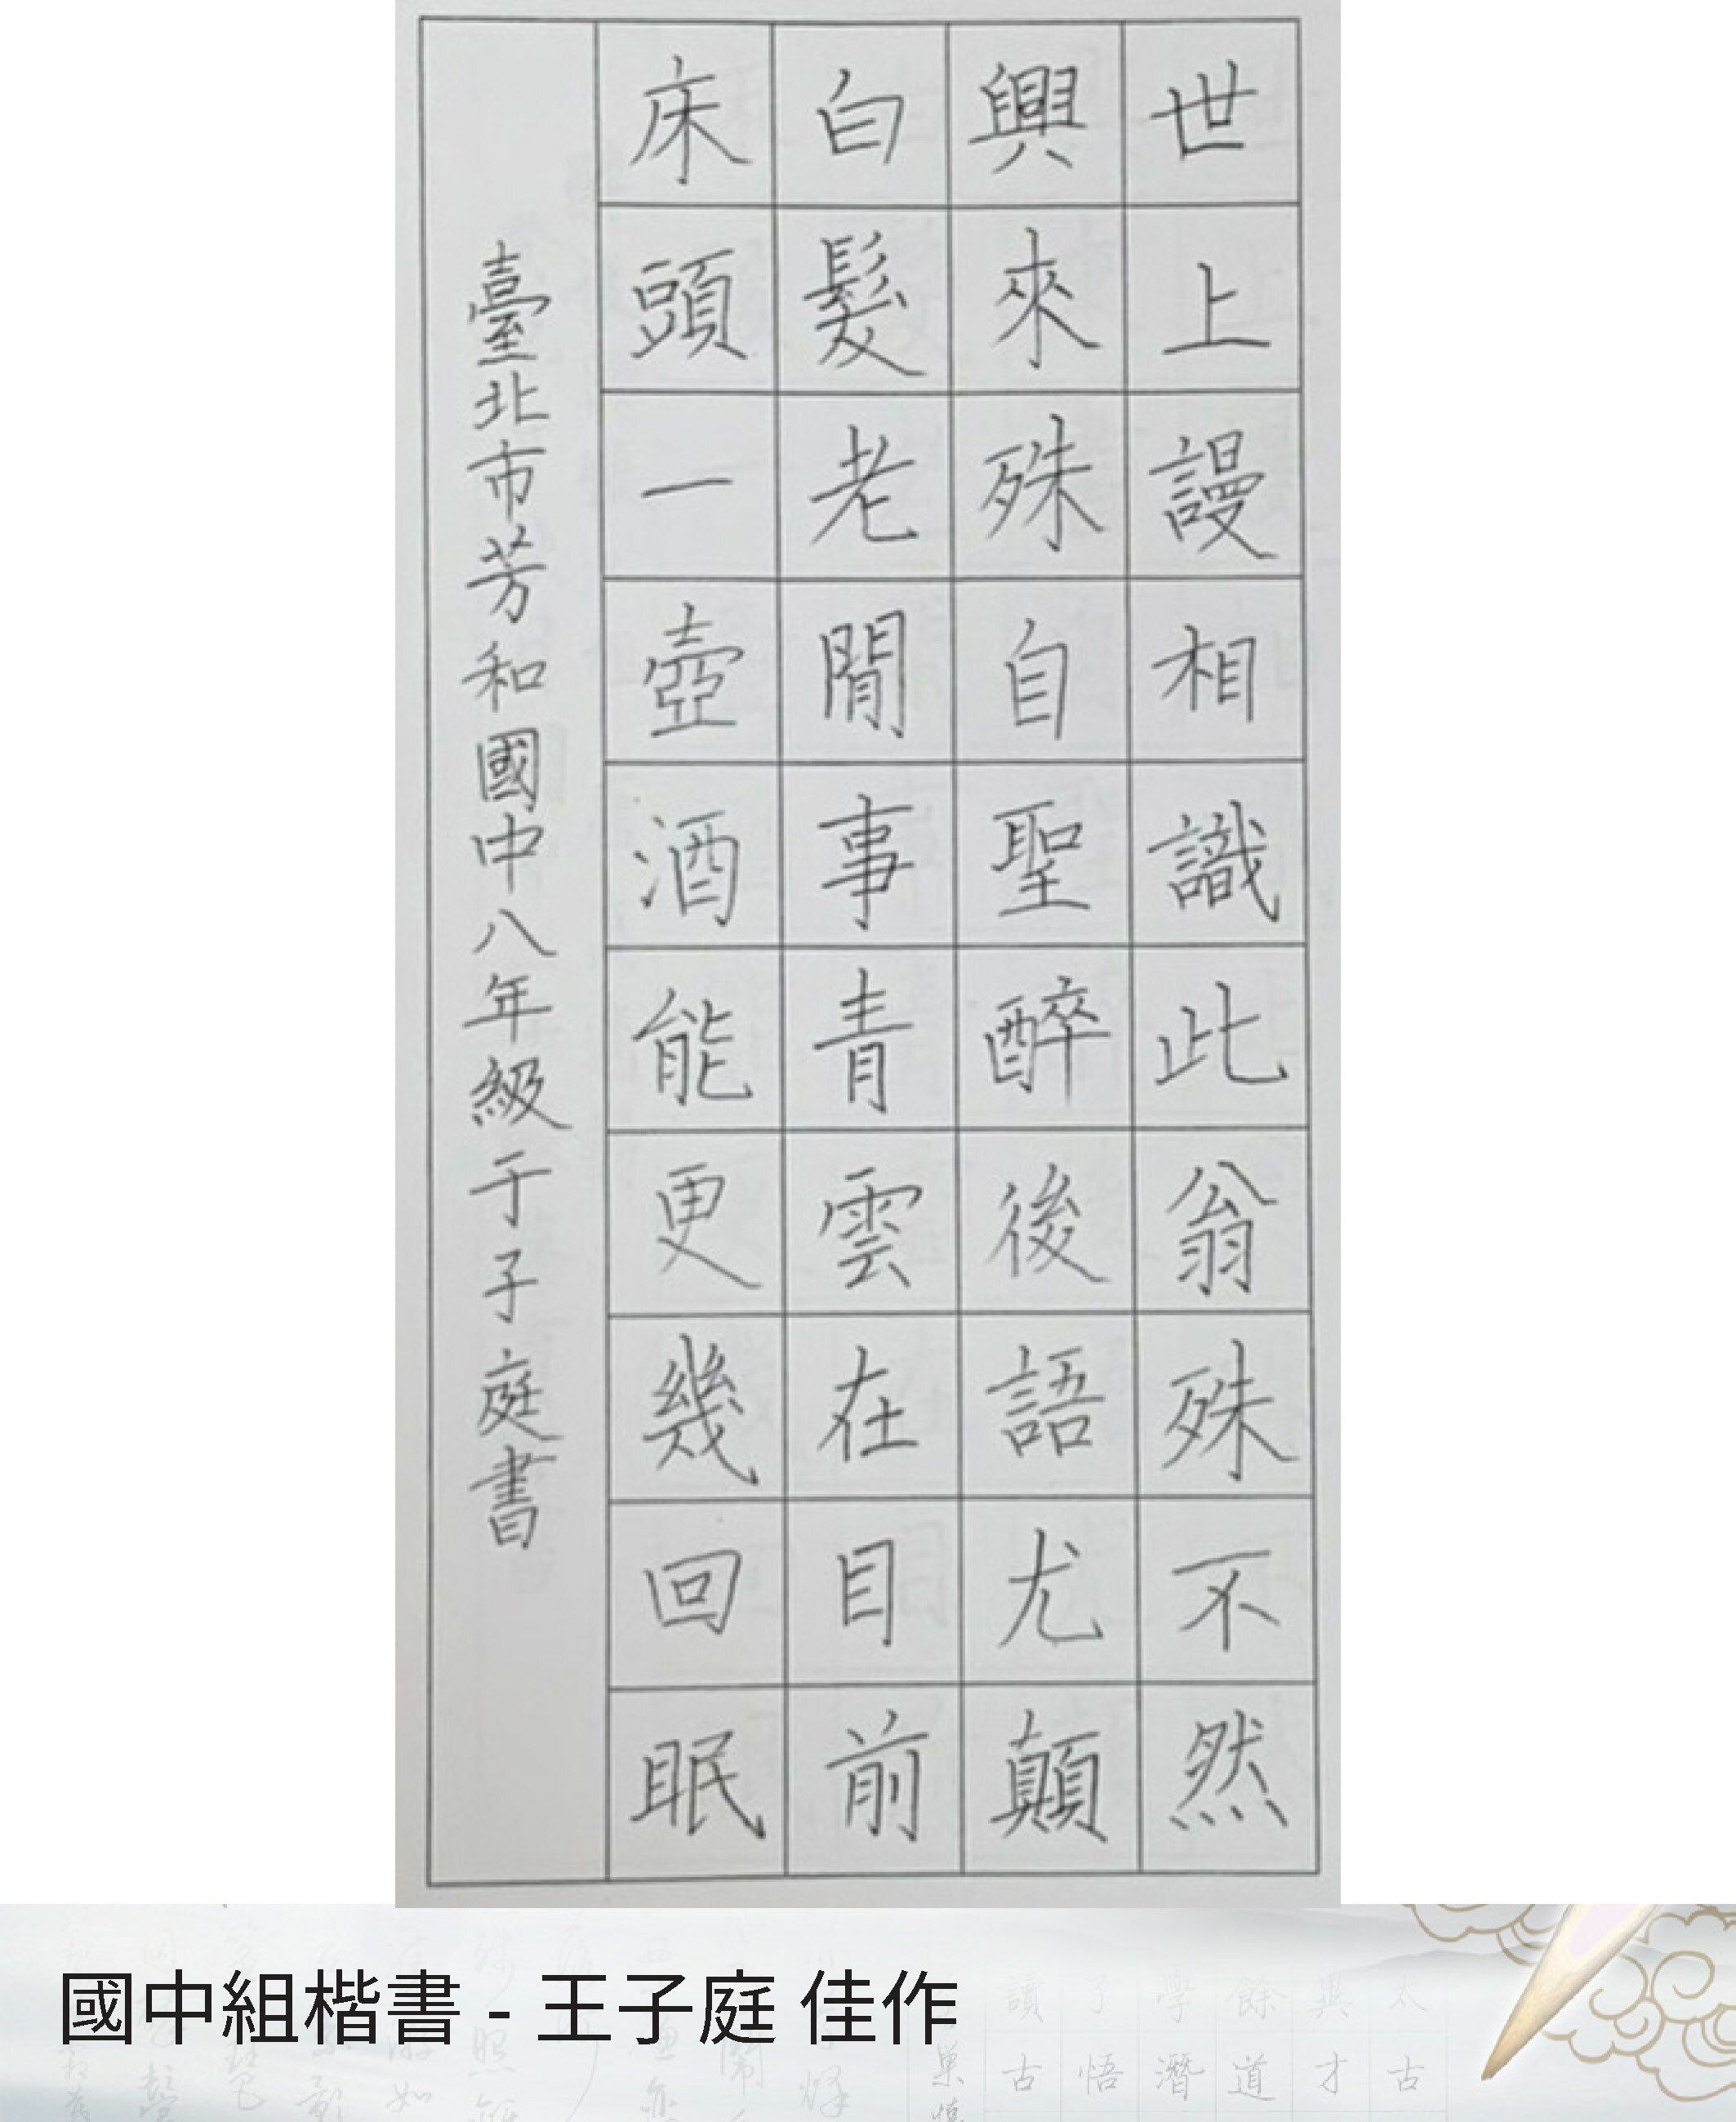 世上謾相識此翁殊不然
興來殊自聖醉後語尤顛
白髮老閒事青雲在目前
床頭一壺酒能更幾回眠
臺北市芳和國中八年級于子庭書
國中組楷書 - 王子庭 佳作
讀了學餘與太
古悟潛道才古